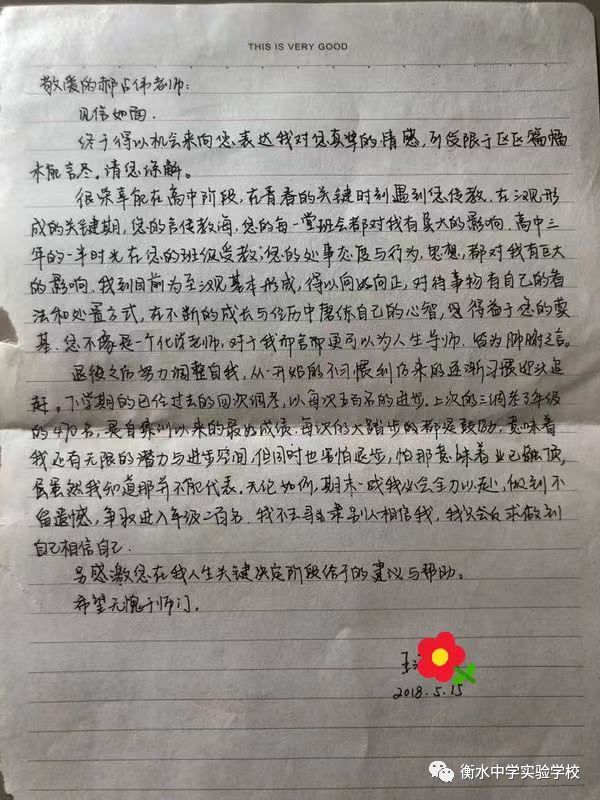 THIS IS VERY GOOD
敬爱的郝占伟老师:
见信如面.
终于得以机会来向您表达我对您真挚的情感,但受限于区区篇幅
未能言尽,请您谅解。
很荣幸能在高中阶段,在青春的关键时刻遇到您传教.在三观形
成的关键期,您的言传教诲,您的每一堂班会都对我有莫大的影响.高中三
年的一半时光在您的班级受教;您的处事态度与行为,思想,都对我有巨大
的影响.我到目前为至三观基本形成,得以向好向正,对待事物有自己的看
法和处置方式,在不断的成长与经历中磨练自己的心智,得益于您的奠
基.您不像是一个化学老师,对于我而言那更可以为人生导师.皆为肺腑之言。
返校之后努力调整自我,从一开始的不习惯到后来的逐渐习惯好以追
赶.下学期的已经过去的四次调考,以每次五百名的进步,上次的三调考了年级
的490名,是自集训以来的最好成绩.每次的大踏步的都是鼓励,意味着
我还有无限的潜力与进步空间,但同时也害怕退步,怕那意味着业已触顶,
虽然我知道那并不能代表,无论如何,期末一战我必会全力以赴,做到不
留遗憾,争取进入年级二百名.我不去寻求别人相信我,我只会力求做到
自己相信自己.
另感激您在我人生关键决定阶段给予的建议与帮助。
希望无愧于师门.
王
2018.5.15
衡水中学实验学校